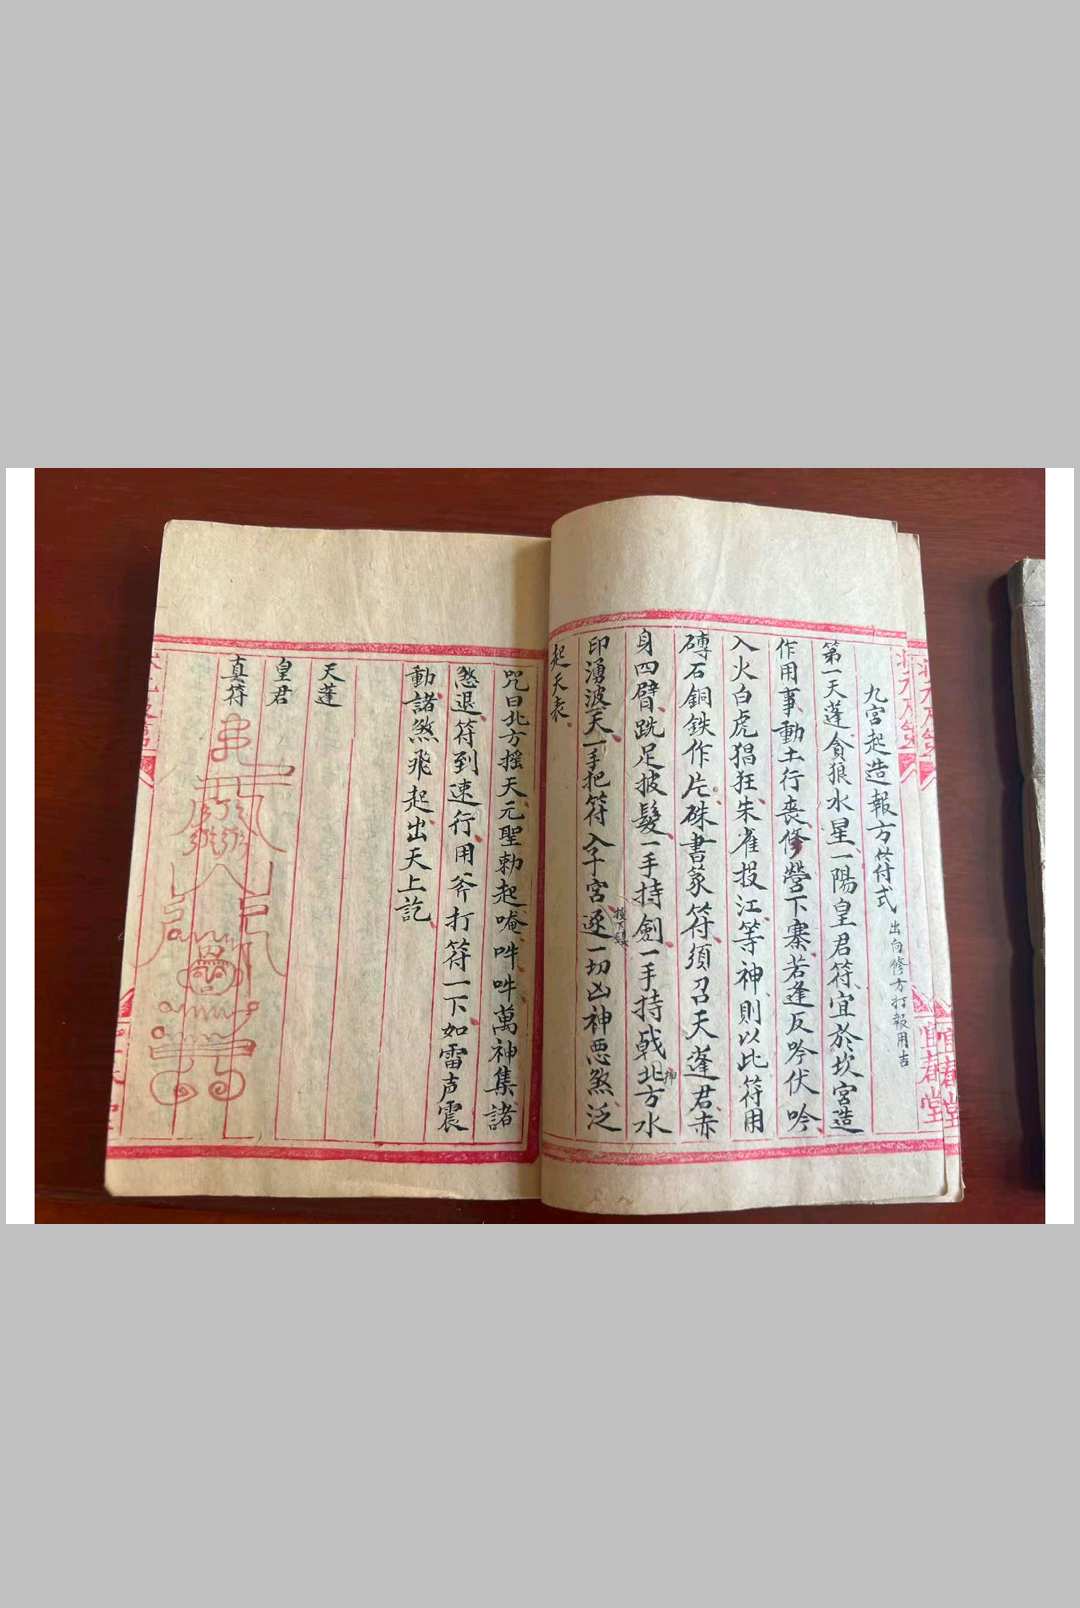 九宮起造報方供付式 出白修方打報用吉
第一天蓬貪狼水星一陽皇君符宜於坎宮造
作用事動土行喪修營下寨若逢反吟伏吟
入火白虎猖狂朱雀投江等神則以此符用
磚石銅鉄作片硃書篆符須召天蓬君赤
身四臂跣足披髮一手持劍一手持戟北方水
印湧波天一手把符入子宮逐一切凶神惡煞泛
起天表
咒曰北方搖天元聖勅起唵吽吽萬神集諸
煞退符到速行用斧打符一下如雷声震
動諸煞飛起出天上訖
天蓬
皇君
真符
宜春堂